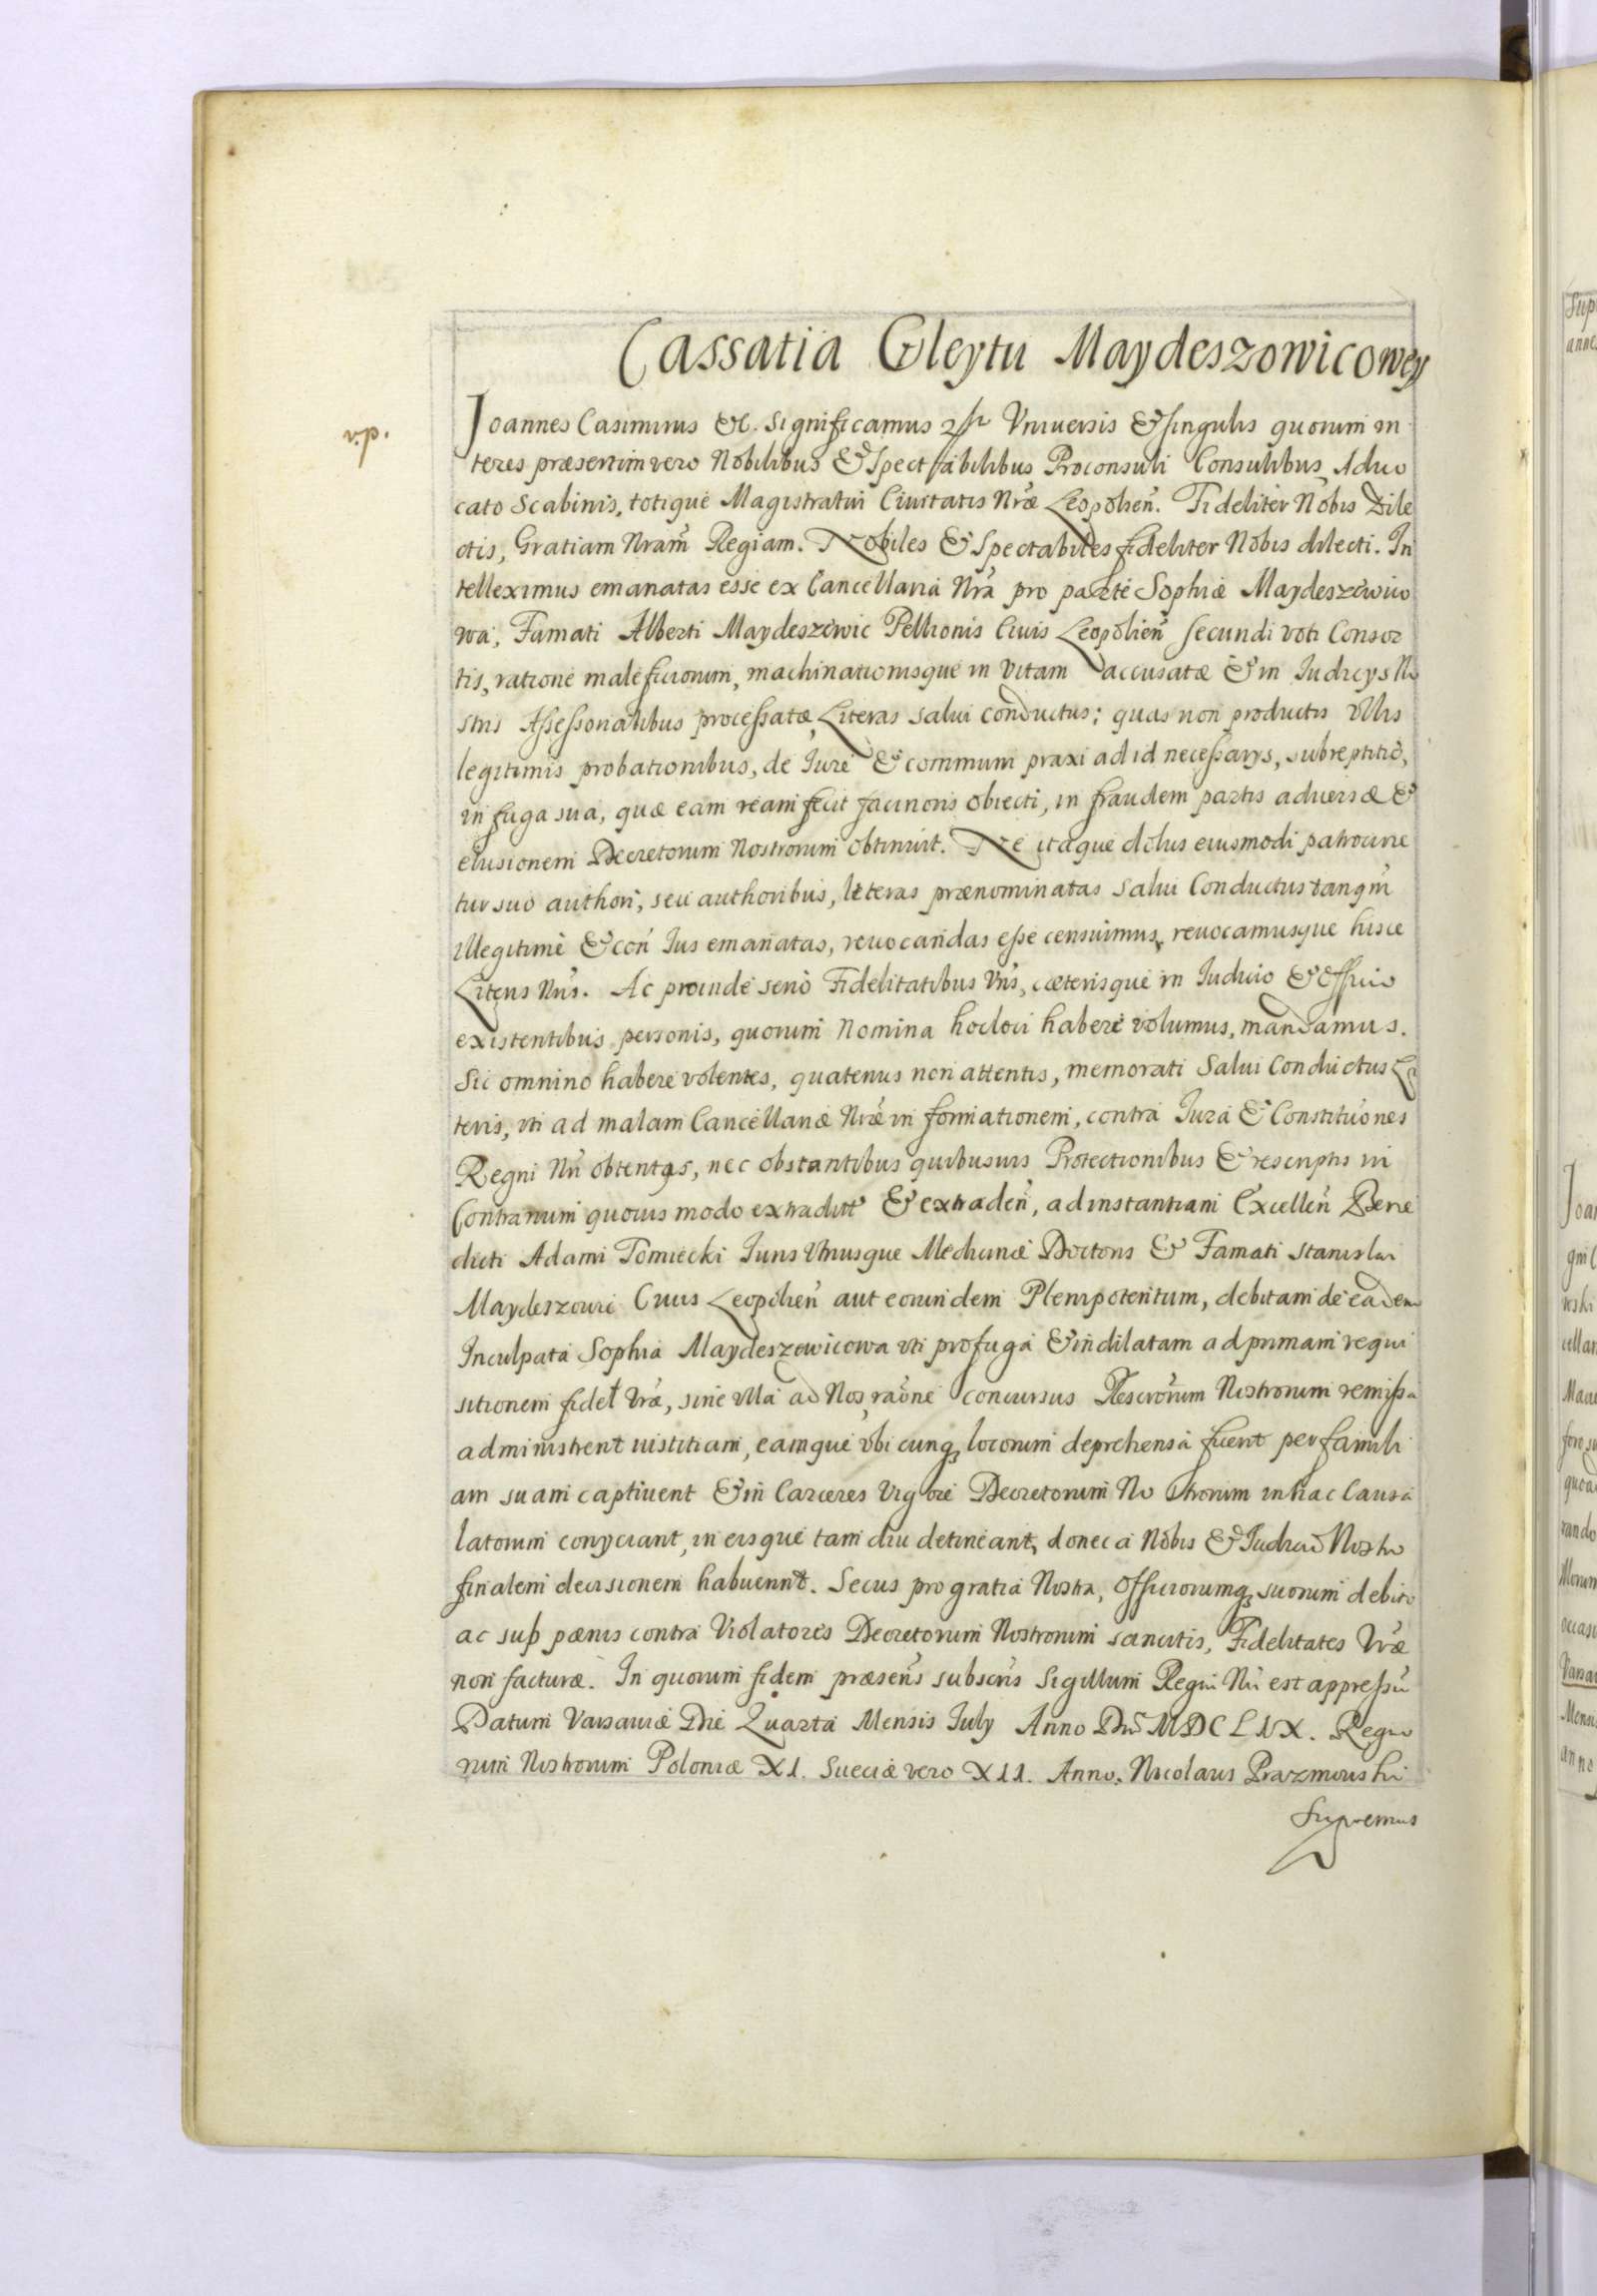 Cassatia Gleytu Maydeszowicowey
v.p.
Joannes Casimirus &c. Significamus Vniuersis & singulis quorum in
teres præsertim vero Nobilibus & Spectabilibus Proconsuli Consulibus, Aduo
cato Scabinis, totique Magistratui Ciuitatis Nræ Leopolien. Fideliter Nobis Dile
ctis, Gratiam Nram Regiam. Nobiles & Spectabiles fideliter Nobis dilecti. In
telleximus emanatas esse ex Cancellaria Nra pro parte Sophiæ Maydeszewico
wa, Famati Alberti Maydeszewic Pellionis Ciuis Leopolien secundi voti Consor
tis, ratione maleficiorum, machinationisque in vitam accusatæ & in Iudicys No
stris Assessorialibus processatæ, Literas salui conductus; quas non productis vllis
legitimis probationibus, de Iure & communi praxi ad id necessarys, subreptitio,
in fuga sua, quæ eam ream fecit facinoris obiecti, in fraudem partis aduersæ &
elusionem Decretorum Nostrorum obtinuit. Ne itaque dolus eiusmodi patrocine
tur suo authori, seu authoribus, literas prænominatas salui Conductus tanqm
illegitime & con Ius emanatas, reuocandas esse censuimus, reuocamusque hisce
Literis Nris. Ac proinde serio Fidelitatibus Vris, cæterisque in Iudicio & Officio
existentibus personis, quorum Nomina hocloci habere volumus, mandamus.
Sic omnino habere volentes, quatenus non attentis, memorati Salui Conductus Li
teris, vti ad malam Cancellariæ Nræ in formationem, contra Iura & Constituones
Regni Nri obtentas, nec obstantibus quibusuis Protectionibus & rescriptis in
Contrarium quouis modo extradit & extraden, ad instantiam Excellen Bene
dicti Adami Tomiecki Iuris Vtriusque Medicinæ Doctoris & Famati Stanislai
Maydeszowic Ciuis Leopolien aut eorundem Plenipotentum, debitam de eadem
Inculpata Sophia Maydeszewicowa vti profuga & indilatam ad primam requi
sitionem fidel Vræ, sine vlla ad Nos, raone concursus Rescrorum Nostrorum remissa
administrent iustitiam, eamque vbi cunq locorum deprehensa fuerit per famili
am suam captiuent & in Carceres Vigore Decretorum No strorum in hac Causa
latorum conyciant, in eisque tam diu detineant, donec a Nobis & Iudicio Nostro
finalem decisionem habuerint. Secus pro gratia Nostra, Officiorumq suorum debito
ac sub pænis contra Violatores Decretorum Nostrorum sancitis, Fidelitates Vræ
non facturæ. In quorum fidem præsens subscris Sigillum Regni Nri est appressu
Datum Varsauiæ Die Quarta Mensis July Anno Dni MDCLIX. Regno
rum Nostrorum Poloniæ XI. Sueciæ vero XII. Anno. Nicolaus Prazmowski
Supremus